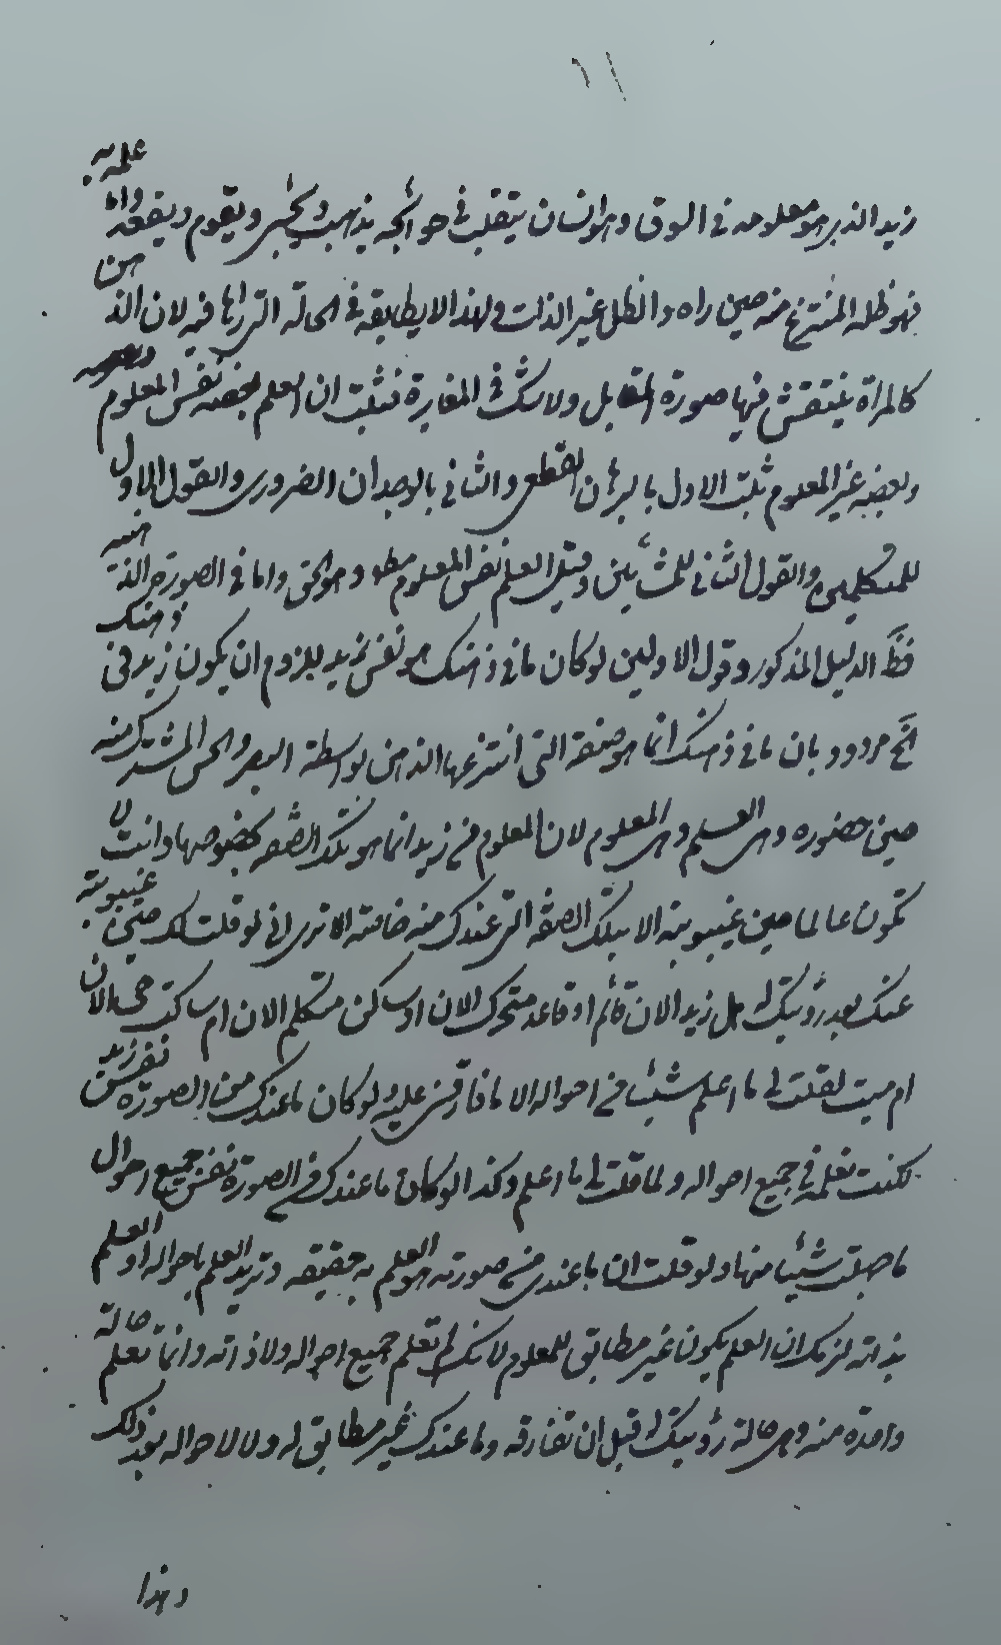 زيد الذي هو معلومه في السوق وهو انسان يتقلب في حوائجه يذهب ويجيء ويقوم ويقعد واما علمه به
فهو ظله المنتزع منه حين راه والظل غير الذات ولهذا لا يطابقه في الحالة التي راها فيه لان الذهن
كالمراة ينتقش فيها صورة المقابل ولا شك في المغايرة فثبت ان العلم بعضه نفس المعلوم وبعضه
وبعضه غير المعلوم ثبت الاول بالبرهان القطعي والثاني بالوجدان الضروري والقول الاول
للمتكلمين والقول الثاني للمشائين وقيل العلم نفس المعلوم مط وهو الحق واما في الصورة الذهنية
فظ الدليل المذكور وقول الاولين لو كان ما في ذهنك هو نفس زيد يلزم ان يكون زيد في ذهنك
الخ مردود بان ما في ذهنك انما هو صفة التي انتزعها الذهن بواسطة البصر والحس المشترك منه
حين حضوره وهي العلم وهي المعلوم لان المعلوم من زيد انما هو تلك الصفة بخصوصها وانت لا
تكون عالما حين غيبوبته الا بتلك الصفة التي عندك منه خاصة الا ترى اني لو قلت لك حين غيبوبته
عنك بعد رؤيتك له هل زيد الان قائم او قاعد متحرك الان او ساكن متكلم الان ام ساكت حي الان
ام ميت لقلت لي ما اعلم شيئا من احواله الا ما فارقني عليه ولو كان ما عندك من الصورة نفس زيد
لكنت تعلمه في جميع احواله ولما قلت لي ما اعلم وكذا لو كان ما عندك من الصورة نفس جميع احوال
ما جهلت شيئا منها ولو قلت ان ما عندي من صورته هو العلم به حقيقة وتريد العلم باحواله او العلم
بذاته لزمك ان العلم يكون غير مطابق للمعلوم لانك لم تعلم جميع احواله ولا ذاته وانما تعلم حالة
واحدة منه وهي حالة رؤيتك له قبل ان تفارقه وما عندك غير مطابق له ولا لاحواله بعد ذلك
وهذا